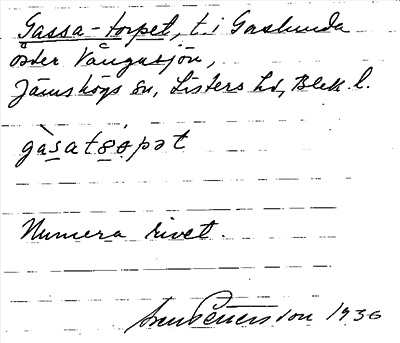 Gassa-torpet, t. i Gaslunda
öster Vångasjön,
Jämshögs sn, Listers hd, Blek. l.
gàsatɵrpət
Numera rivet.
Sven Petersson 1936